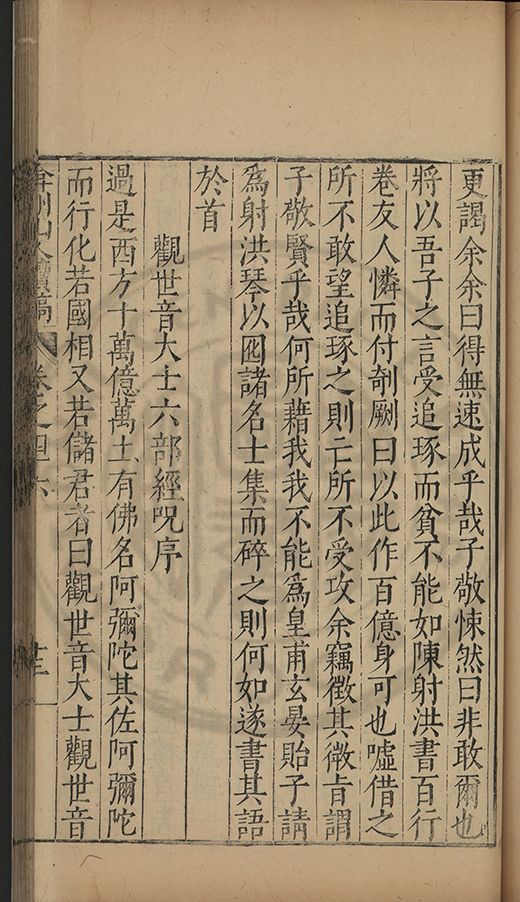 更謁余余曰得無速成乎哉子敬悚然曰非敢爾也
將以吾子之言受追琢而貧不能如陳射洪書百行
卷友人憐而付剞劂曰以此作百億身可也噓借之
所不敢望追琢之則亡所不受攻余竊徵其微旨謂
子敬賢乎哉何所藉我我不能爲皇甫玄晏貽子請
爲射洪琴以囮諸名士集而碎之則何如遂書其語
於首
觀世音大士六部經呪序
過是西方十萬億萬土有佛名阿彌陀其佐阿彌陀
而行化若國相又若儲君者曰觀世音大士觀世音
弇州山人續稿
卷之四十六